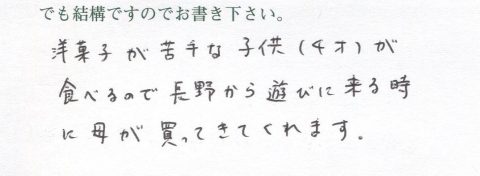 でも結構ですのでお書き下さい。
洋菓子が苦手な子供(4才)が
食べるので長野から遊びに来る時
に母が買ってきてくれます。